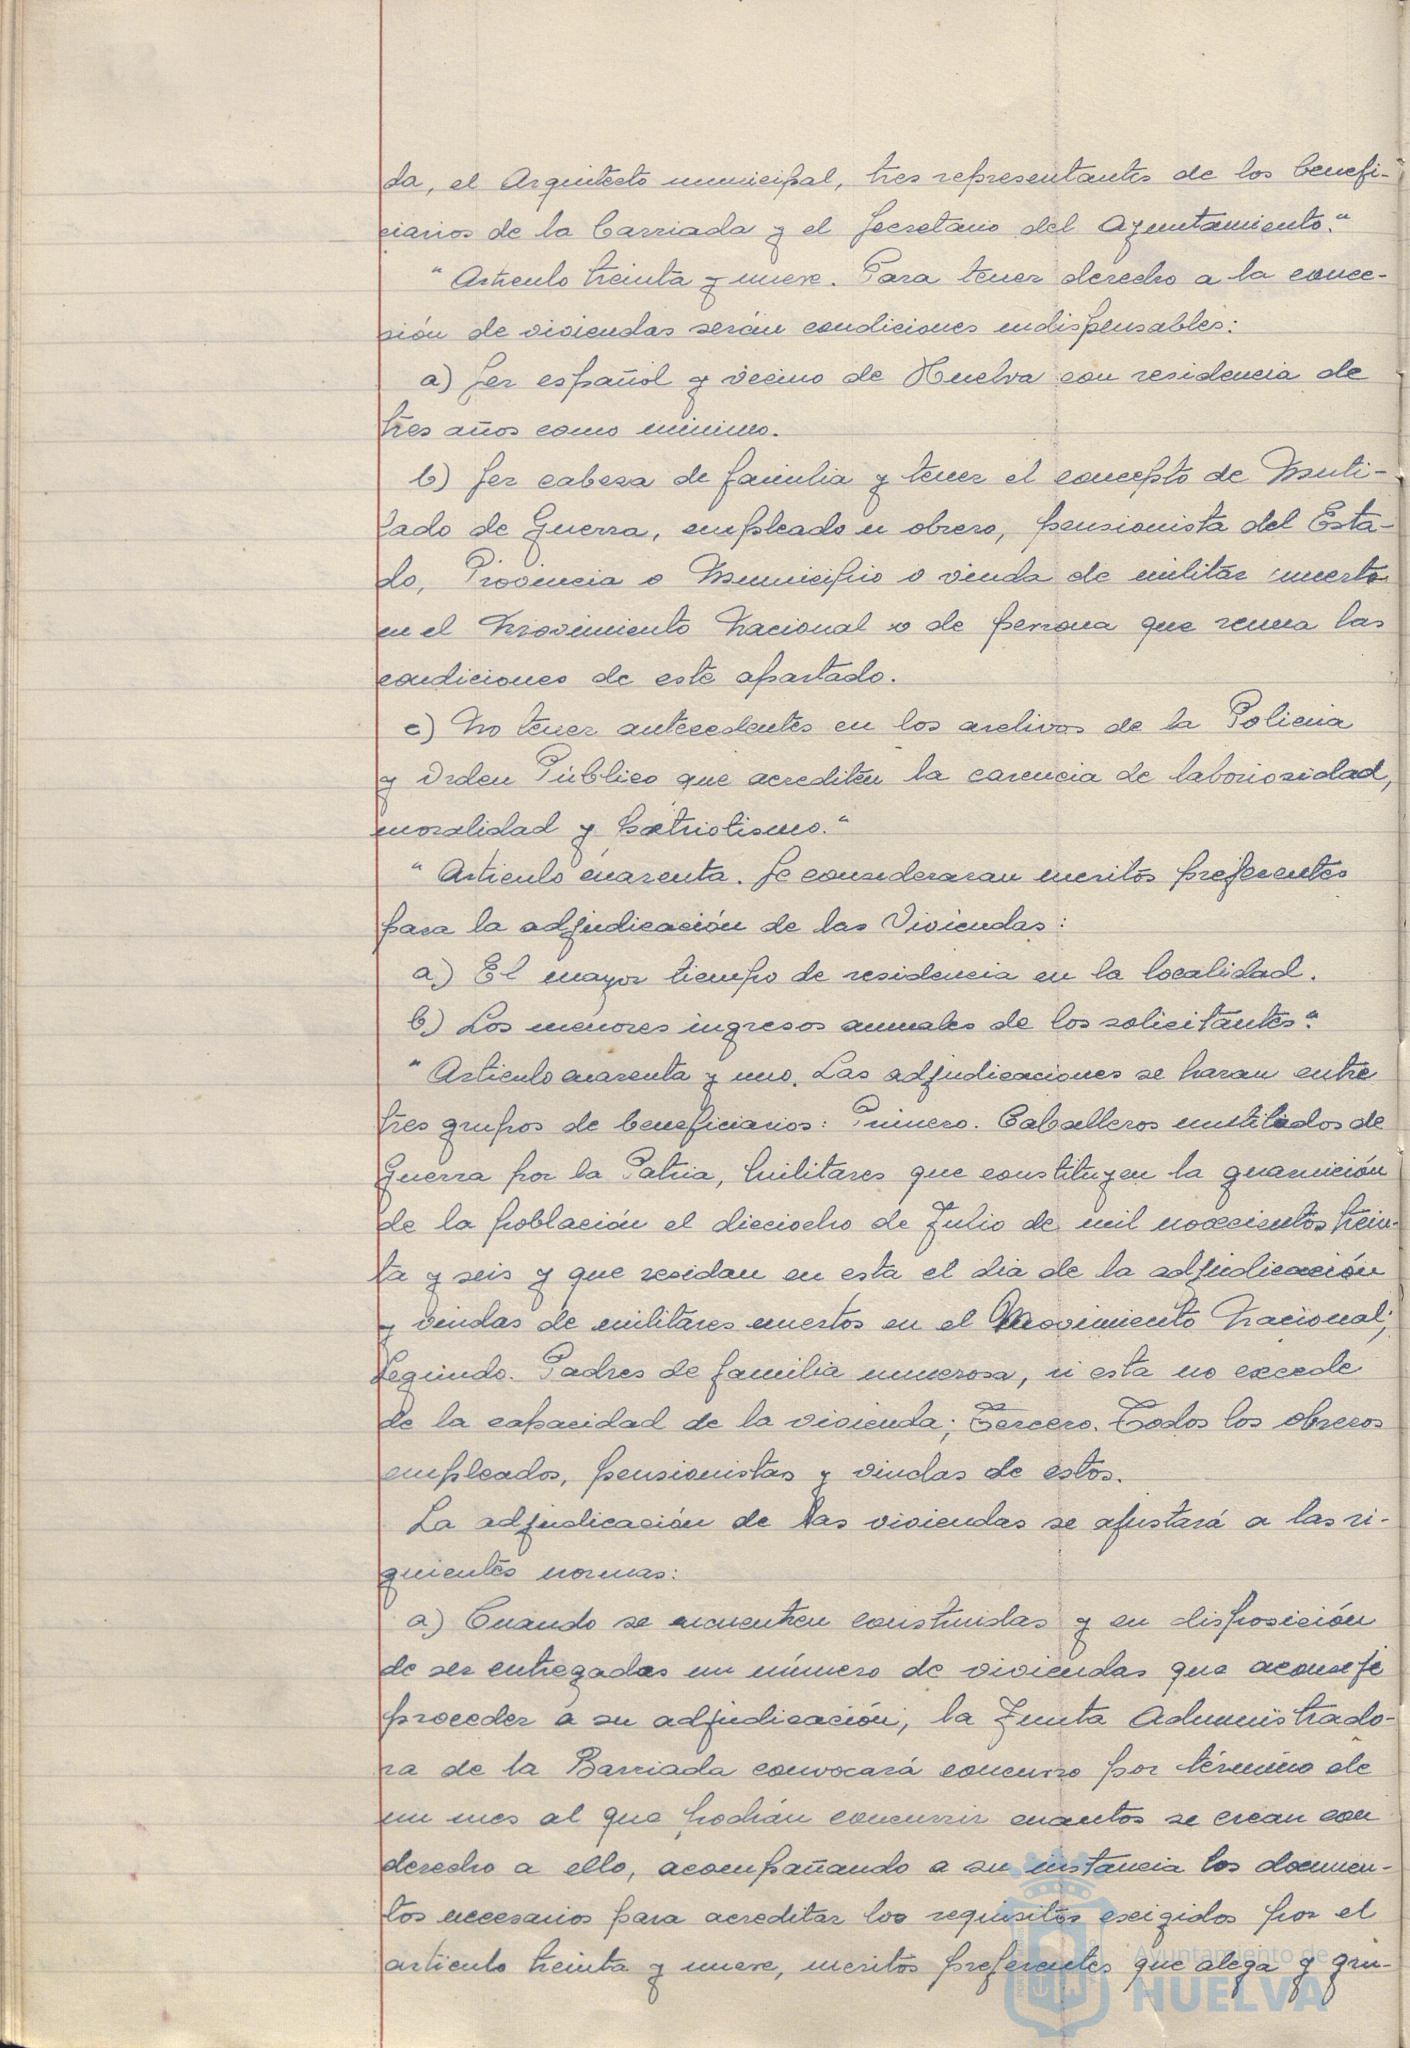 da, el Arquitecto municipal, tres representantes de los benefi-
ciarios de la barriada y el Secretario del Ayuntamiento."
"Articulo treinta y nueve. Para tener derecho a la conce-
sión de viviendas serán condiciones indispensables:
a) Ser español y vecino de Huelva con residencia de
tres años como minimo.
b) Ser cabeza de familia y tener el concepto de Muti-
lado de Guerra, empleado u obrero, pensionista del Esta-
do, Provincia o Municipio o viuda de militar muerto
en el Movimiento Nacional o de persona que reuna las
condiciones de este apartado.
c) No tener antecedentes en los archivos de la Policia
y Orden Público que acrediten la carencia de laboriosidad,
moralidad y patriotismo."
"Articulo cuarenta. Se consideraran meritos preferentes
para la adjudicación de las Viviendas:
a) El mayor tiempo de residencia en la localidad.
b) Los menores ingresos anuales de los solicitantes."
"Articulo cuarenta y uno. Las adjudicaciones se haran entre
tres grupos de beneficiarios: Primero. Caballeros mutilados de
Guerra por la Patria, militares que constituyen la guarnición
de la población el dieciocho de Julio de mil novecientos trein-
ta y seis y que residan en esta el dia de la adjudicación
y viudas de militares muertos en el Movimiento Nacional;
Segundo. Padres de familia numerosa, si esta no excede
de la capacidad de la vivienda; Tercero. Todos los obreros
empleados, pensionistas y viudas de estos.
La adjudicación de las viviendas se ajustará a las si-
guientes normas:
a) Cuando se encuentren construidas y en disposición
de ser entregadas un número de viviendas que aconseje
proceder a su adjudicación, la Junta Administrado-
ra de la Barriada convocará concurso por término de
un mes al que podrán concurrir cuantos se crean con
derecho a ello, acompañando a su instancia los documen-
tos necesarios para acreditar los requisitos exigidos por el
articulo treinta y nueve, meritos preferentes que alega y gru-
Ayuntamiento de
HUELVA